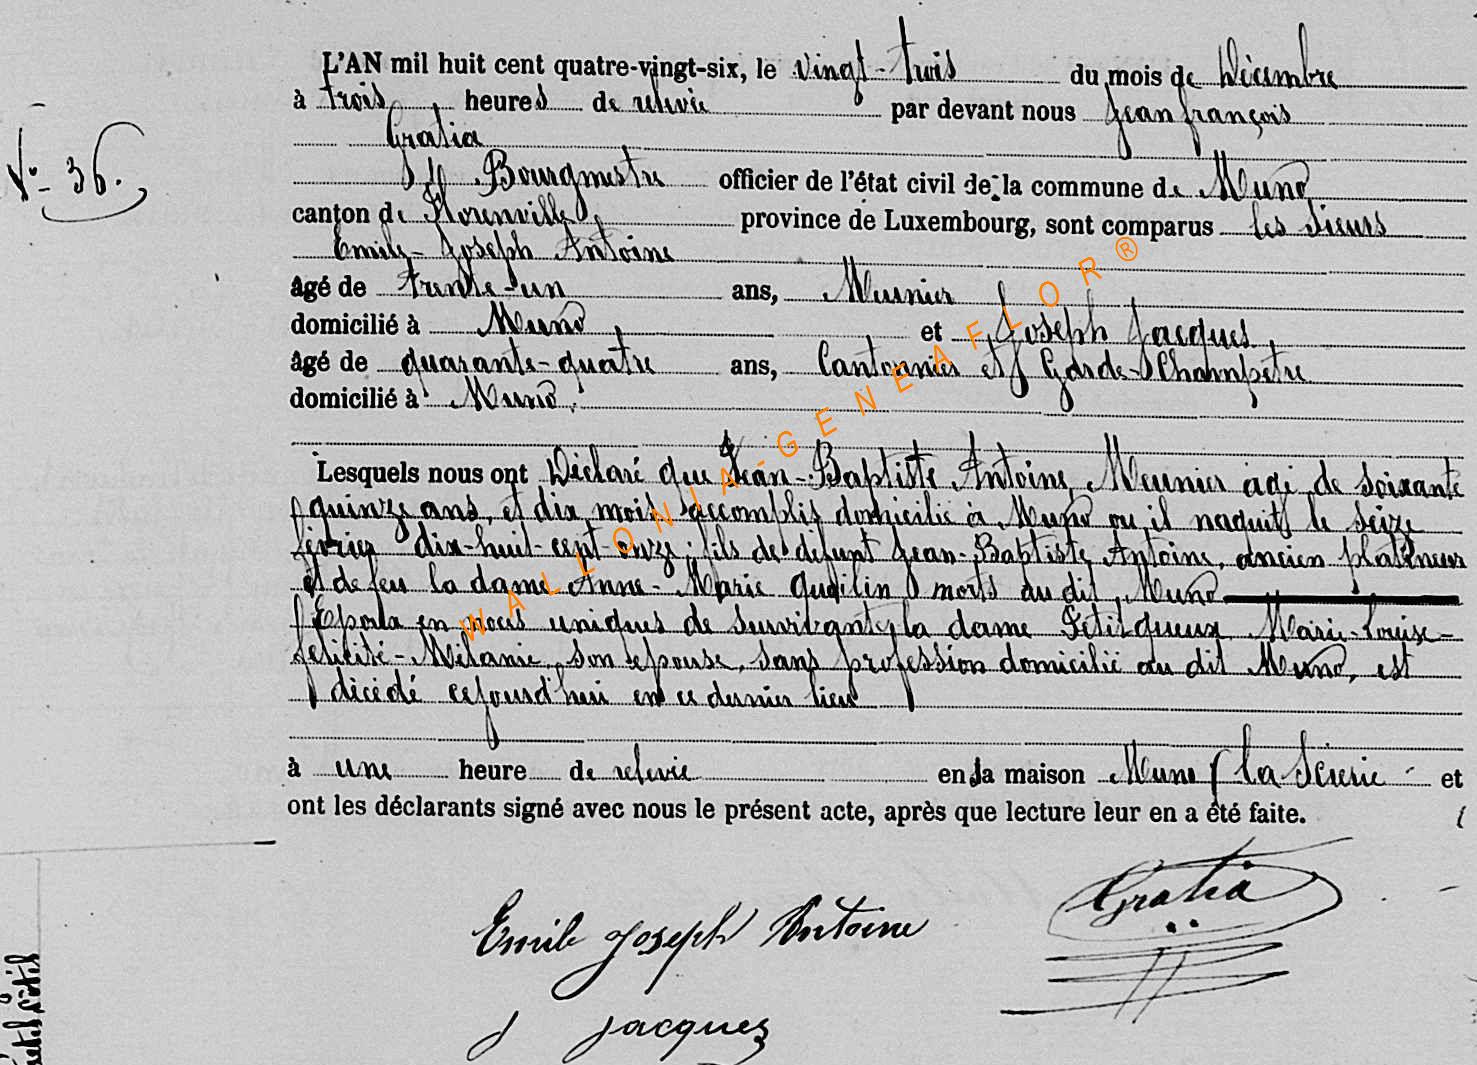 N° 36.
L'AN mil huit cent quatre-vingt-six, le vingt-trois du mois de Décembre
à trois heures de relevée par devant nous Jean françois
Gratia
Bourgmestre officier de l'état civil de la commune de Muno
canton de Florenville, province de Luxembourg, sont comparus les sieurs
Emile-Joseph Antoine
âgé de trente-un ans, Meunier
domicilié à Muno et Joseph Jacques
âgé de quarante-quatre ans, Cantonnier et Garde-Champêtre
domicilié à Muno.
Lesquels nous ont Déclaré que Jean-Baptiste Antoine, Meunier âgé de soixante
quinze ans, et dix mois accomplis domicilié à Muno où il naquit le seize
février dix-huit-cent-onze; fils de défunt Jean-Baptiste Antoine, ancien platineur
et de feu la dame Anne-Marie Guoilin morts au dit Muno
Epoux en noces uniques de survivante la dame Petitqueux Marie-Louise-
félicité-Mélanie, son épouse, sans profession domicilié au dit Muno, est
décédé cejourd'hui en ce dernier lieu
à une heure de relevée en sa maison Muno la Scierie et
ont les déclarants signé avec nous le présent acte, après que lecture leur en a été faite.
Gratia
Emile Joseph Antoine
J Jacques
WALLONIA-GENEAFLOR®